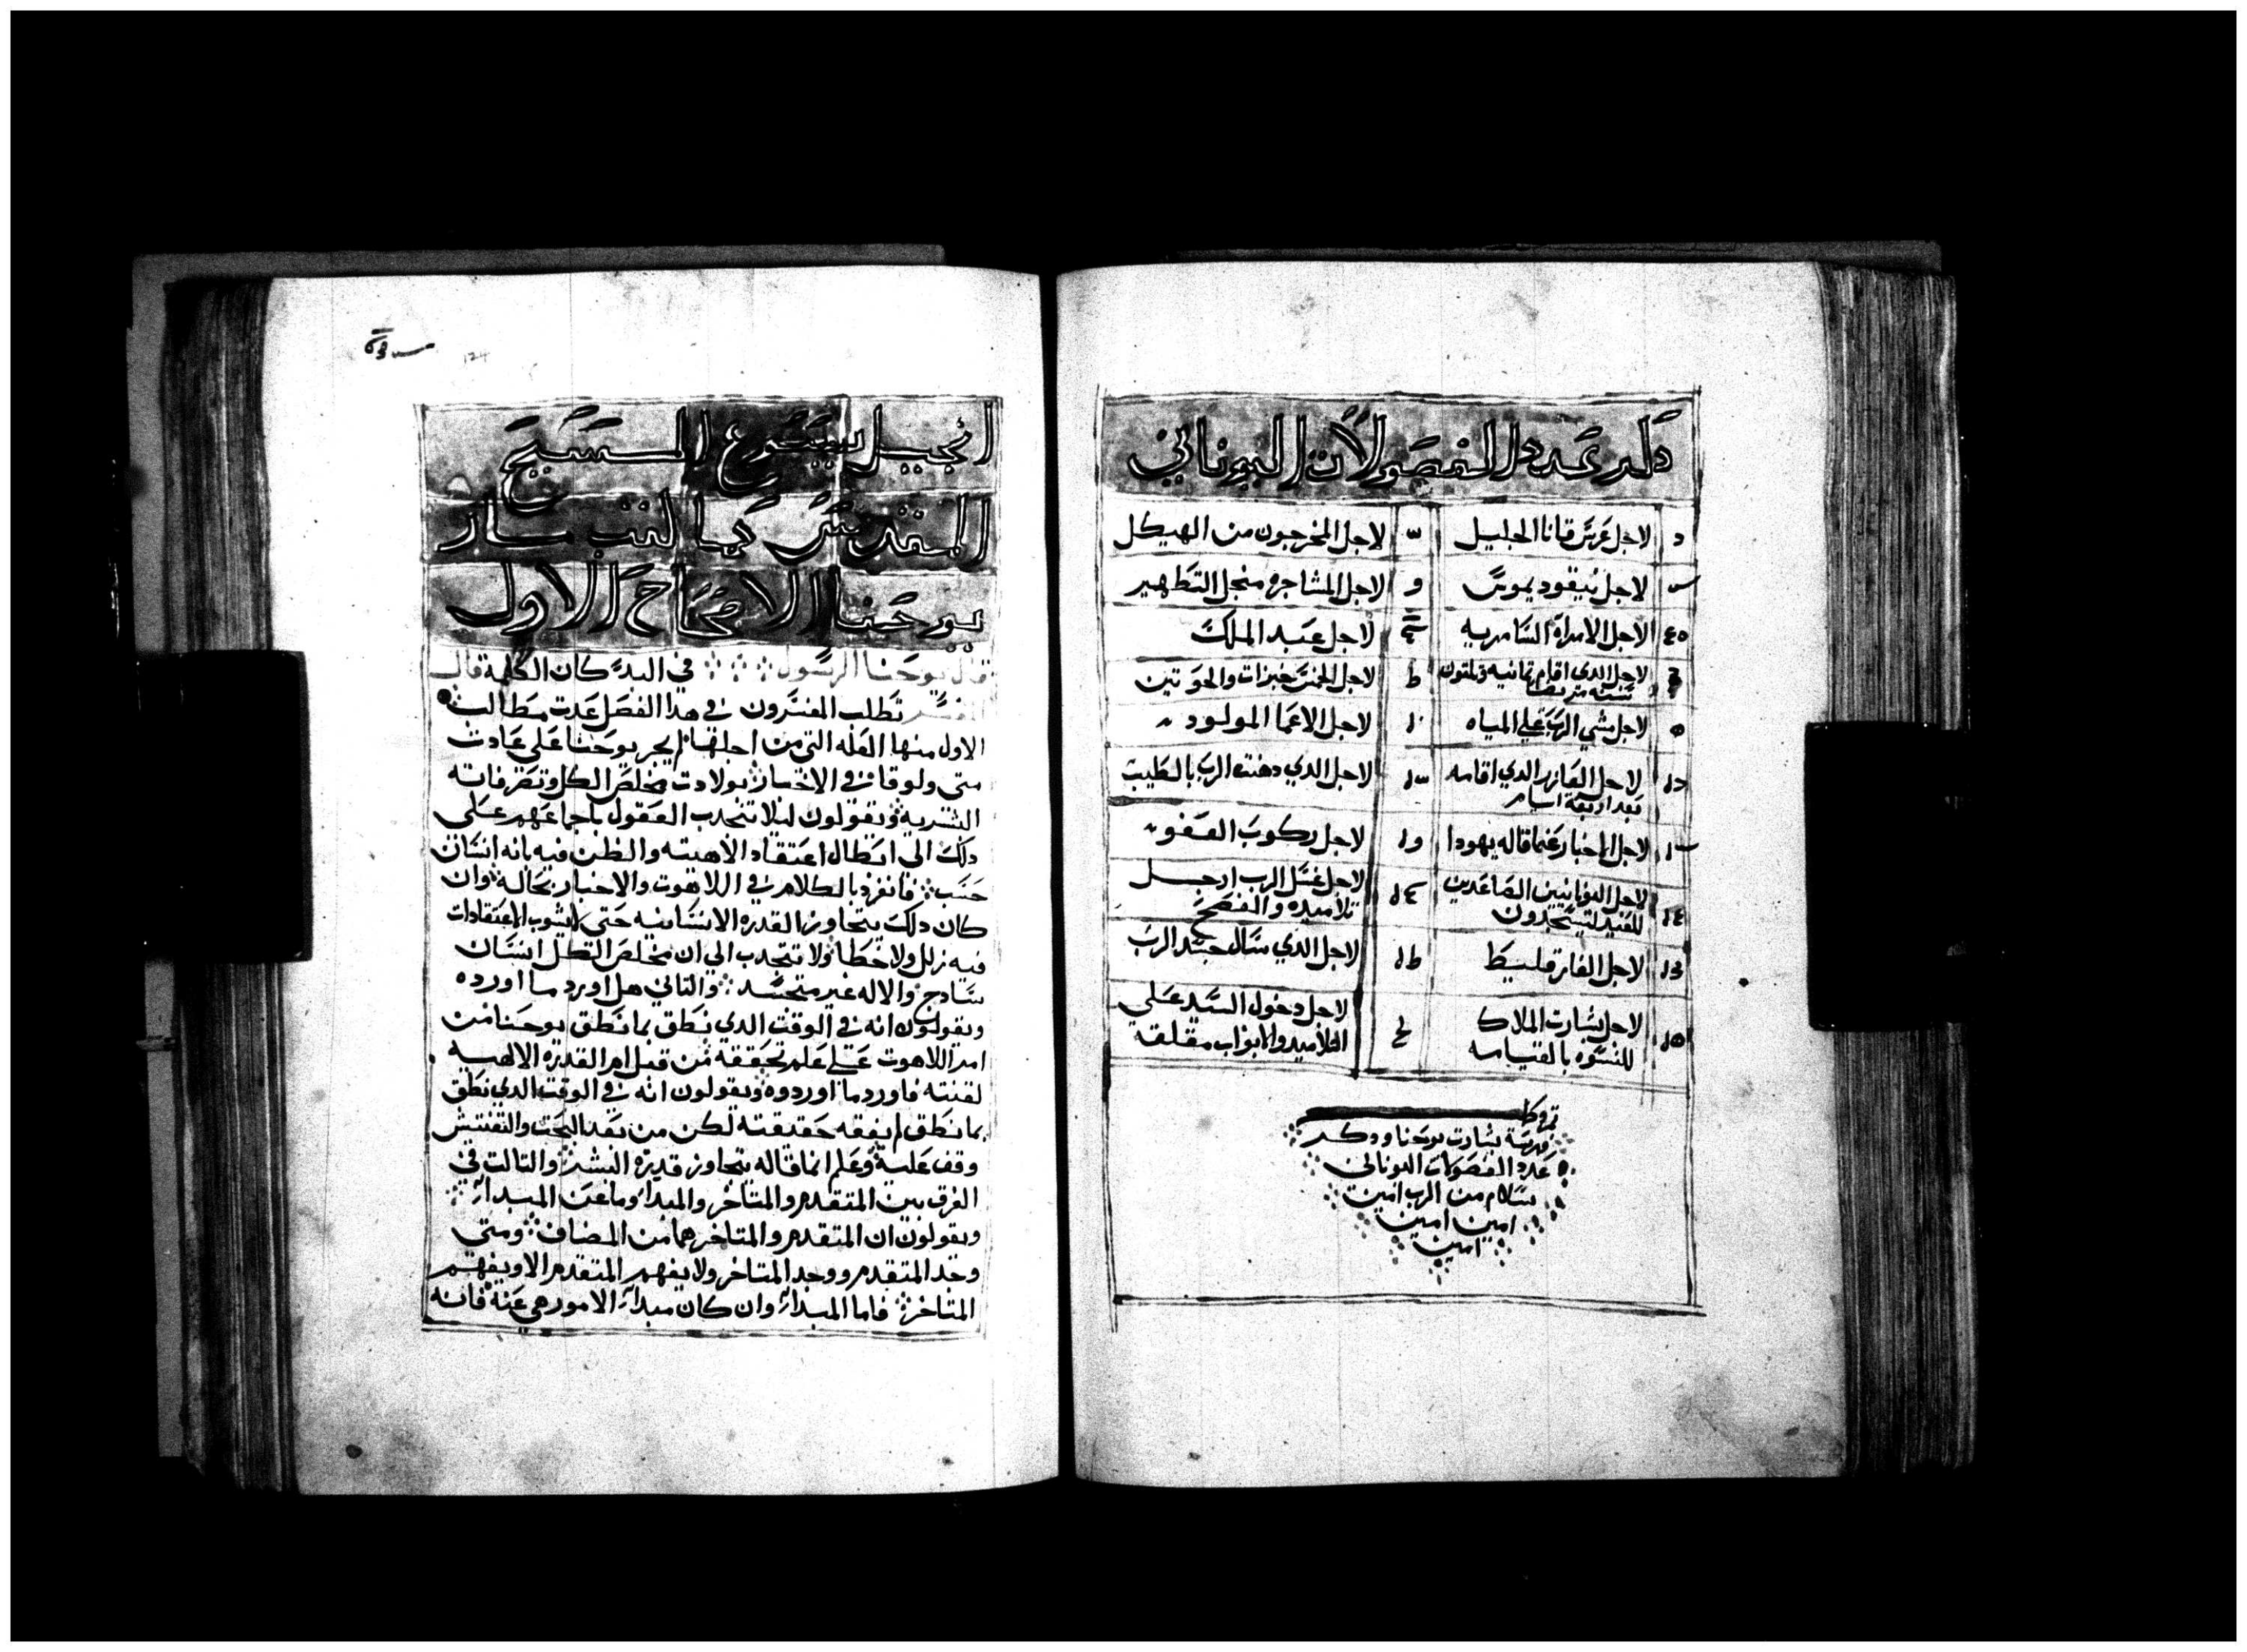 دكر عدد الفصولات اليوناني
لاجل عرس قانا الجليل
لاجل المخرجون من الهيكل
لاجل نيقوديموس
و لاجل المشاجره منجل التطهير
لاجل الامراة السامريه
لاجل عبد الملك
لاجل الدي اقام تمانيه وتلتون
سنه
ط لاجل الخمس خبزات والحوتين
لاجل مشي الرب علي المياه
لاجل الاعما المولود
لاجل العازر الدي اقامه
بعد اربعة ايام
لاجل الدي دهنت الرب بالطيب
لاجل الاخبار عما قاله يهودا
لاجل ركوب العفو
لاجل اليونانيين الصاعدين
للعيد ليسجدون
لاجل غسل الرب ارجل
تلاميده والفصح
لاجل الفارقليط
لاجل الدي سال جسد الرب
لاجل بشارت الملاك
للنسوه بالقيامه
لاجل دخول السيد علي
التلاميد والابواب مقلقه
فهرسة بشارت يوحنا ودكر
عدد الفصولات اليوناني
بسلام من الرب امين
امين امين
امين
انجيل يسوع المسيح
المقدس كما كتب مار
يوحنا الاصحاح الاول
قال يوحنا الرسول في البدء كان الكلمة قال
المفسر تطلب المفسرون في هدا الفصل عدت مطالب
الاول منها العله التي من اجلها لم يجر يوحنا علي عادت
متي ولوقا في الاخبار بولادت مخلص الكل وتصرفاته
البشريه ويقولون ليلا تنجدب العقول باجماعهم علي
دلك الي ابطال اعتقاد الاهيته والظن فيه بانه انسان
حسب فانفرد بالكلام في اللاهوت والاخبار بحاله وان
كان دلك يتجاوز القدره الانسانيه حتي لايشوب الاعتقادات
فيه زلل ولا خطا ولا تنجدب الي ان مخلص الكل انسان
سادج والاله غير متجسد والتاني هل اورد ما اورده
ويقولون انه في الوقت الدي نطق بما نطق يوحنا من
امر اللاهوت علي علم تحققه من قبل ام القدره الالهيه
لقنته فاورد ما اورده ويقولون انه في الوقت الدي نطق
بما نطق لم يفقه حقيقته لكن من بعد البحت والتفتيش
وقف عليه وعلم انما قاله يتجاوز قدرة البشر والتالت في
الفرق بين المتقدم والمتاخر والمبدا وما عن المبدا
ويقولون ان المتقدم والمتاخر هما من المضاف ومتي
وجد المتقدم ووجد المتاخر ولا يفهم المتقدم الا ويفهم
المتاخر فاما المبدا وان كان مبدا الامور هي عنه فانه